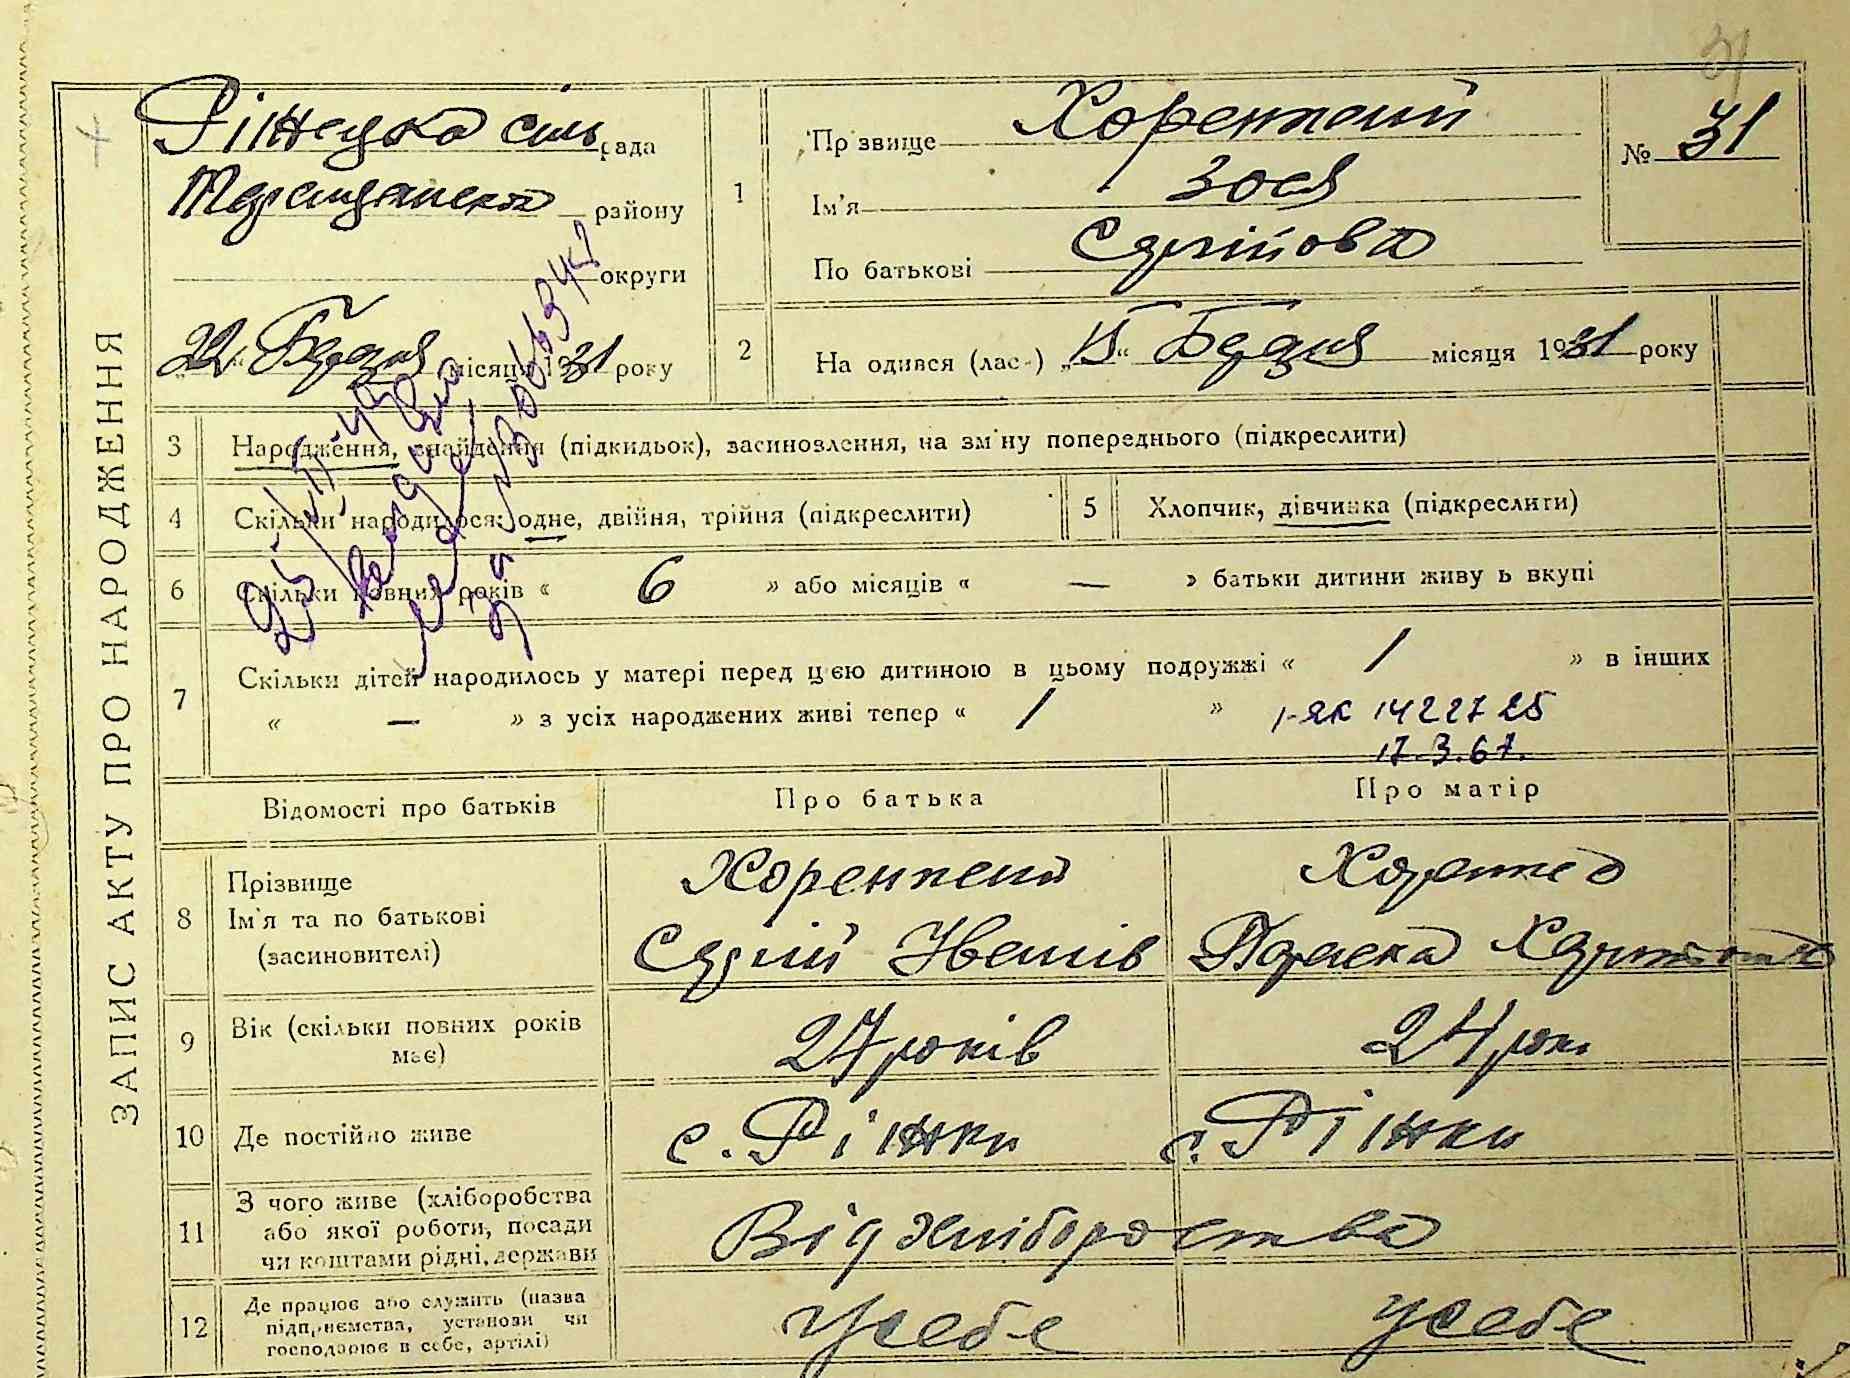 31
ЗАПИС АКТУ ПРО НАРОДЖЕННЯ
Ріжецка сіль рада
району
округи
22 " Березня місяця 1931 року
1
Прізвище Хоренжений
Ім'я Зоя
По батькові Сергійова
№ 31
2 На одився (лас-) „15“ Березня місяця 1931 року
3 Народження, знайдення (підкидьок), засиновлення, на зміну попереднього (підкреслити)
4 Скільки народилося: одне, двійня, трійня (підкреслити)
5 Хлопчик, дівчинка (підкреслити)
6 Скільки повних років « 6 » або місяців « — » батьки дитини живу ь вкупі
7 Скільки дітей народилось у матері перед цією дитиною в цьому подружжі « 1 » в інших
« — » з усіх народжених живі тепер « 1 »
I-ЯК 1422725
17.3.67.
Відомості про батьків
Про батька
Про матір
8 Прізвище
Ім'я та по батькові
(засиновителі)
Хоренжений
Сергій
9 Вік (скільки повних років має)
27 років
24 рок
10 Де постійно живе
с. Ріжки
с. Ріжки
11 З чого живе (хліборобства
або якої роботи, посади
чи коштами рідні, держави
Від хліборобства
12 Де працює або служить (назва
підприємства, установи чи
господарює в себе, артілі)
у себе
у себе